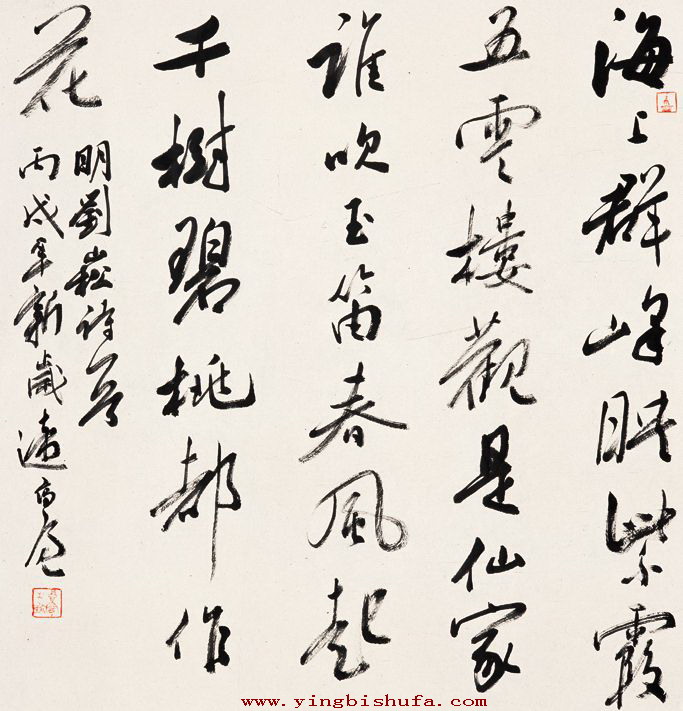 海上群峰映紫霞
五雲樓觀是仙家
誰吹玉笛春風起
千樹碧桃都作
花
明劉崧詩一首
丙戌年新歲
www.yingbishufa.com